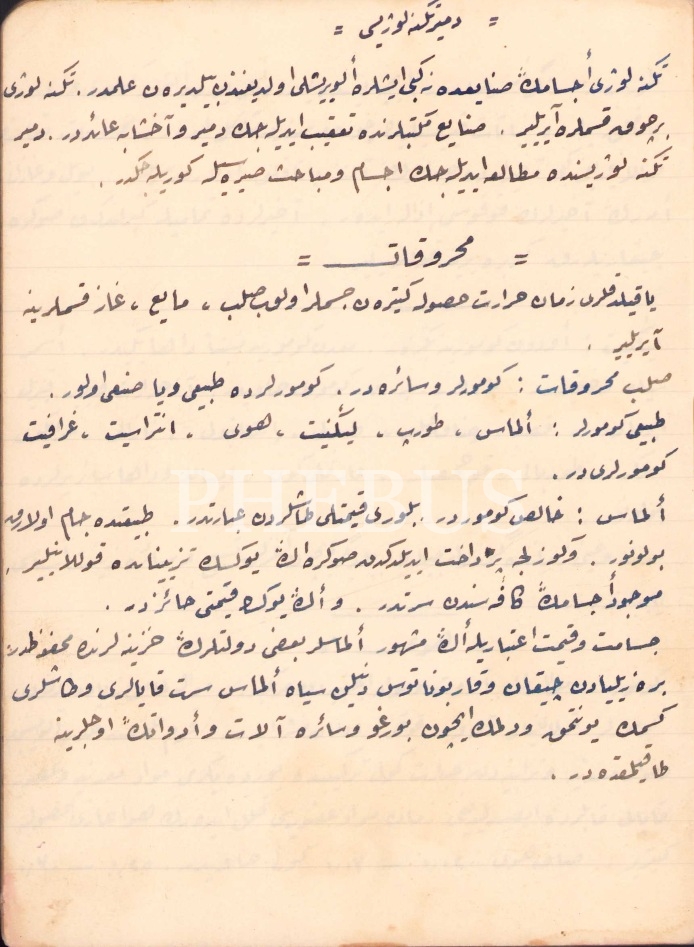 = دمیر تكنه لوژیسی =
تكنه لوژی أجسامڭ صنایعده نه كبی ایشلره ألویریشلی اولدیغندن بیلدیره ن علمدر . تكنه لوژی
بر چوق قسملره آیریلیر . صنایع مكتبلرنده تعقیب ایدیله جك دمیر و آخشابه عائددر . دمیر
تكنه لوژیسنده مطالعه ایدیله جك اجسام و مباحث صیره سیله كوریله جكدر .
= محروقات =
یاقیلدقلری زمان حرارت حصوله كتیره ن جسملر اولوب صلب ، مایع ، غاز قسملرینه
آیریلیر .
صلب محروقات : كومورلر وسائره در . كومورلرده طبیعی ویا صنعی اولور .
طبیعی كومورلر : ألماس ، طورب ، لیگنیت ، هوی ، انتراسیت ، غرافیت
كومورلری در .
ألماس : خالص كوموردر . بللوری قیمتلی طاشلردن عبارتدر . طبیعتده جام اولارق
بولونور . وكوزلجه پرداخت ایدیلدكدن صوكره اڭ یوكسك تزییناتده قوللانیلیر .
موجود أجسامڭ كافه سندن سرتدر . و أڭ یوكسك قیمتی حائزدر .
جسامت وقیمت اعتباریله أڭ مشهور ألماسلر بعض دولتلرڭ خزینه لرنده محفوظدر
بره زیلیادن چیقان وقاربوناتوس دنیلن سیاه ألماس سرت قایالری وطاشلری
كسمك یونتمق ودلمك ایچون بورغو وسائره آلات وأدواتڭ اوجلرینه
طاقیلمقده در .
PHEBUS